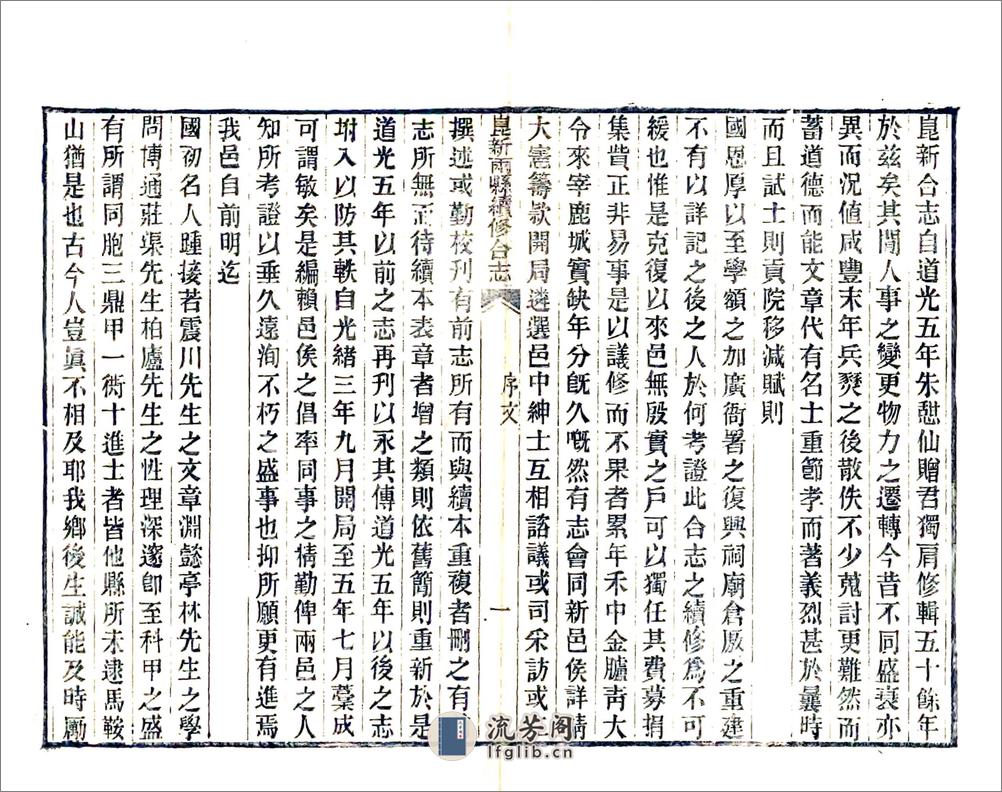 崑新合志自道光五年朱甜仙贈君獨肩修輯五十餘年
於兹矣其閒人事之變更物力之遷轉今昔不同盛衰亦
異而況值咸豐末年兵燹之後散佚不少蒐討更難然而
蓄道德而能文章代有名士重節孝而著義烈甚於曩時
而且試士則貢院移減賦則
國恩厚以至學額之加廣衙署之復興祠廟倉厫之重建
不有以詳記之後之人於何考證此合志之續修爲不可
緩也惟是克復以來邑無殷實之戶可以獨任其費募捐
集貲正非易事是以議修而不果者累年禾中金臚靑大
令來宰鹿城實缺年分旣久嘅然有志會同新邑侯詳請
大憲籌款開局遴選邑中紳士互相諮議或司采訪或
崑新兩縣續修合志
序文
一
撰述或勤校刋有前志所有而與續本重複者刪之有
志所無而待續本表章者增之類則依舊簡則重新於是
道光五年以前之志再刋以永其傳道光五年以後之志
坿入以防其軼自光緖三年九月開局至五年七月藁成
可謂敏矣是編賴邑侯之倡率同事之精勤俾兩邑之人
知所考證以垂久遠洵不朽之盛事也抑所願更有進焉
我邑自前明迄
國初名人踵接若震川先生之文章淵懿亭林先生之學
問博通莊渠先生柏廬先生之性理深邃卽至科甲之盛
有所謂同胞三鼎甲一衖十進士者皆他縣所未逮馬鞍
山猶是也古今人豈眞不相及耶我鄉後生誠能及時勵
流芳阁
lfglib.cn